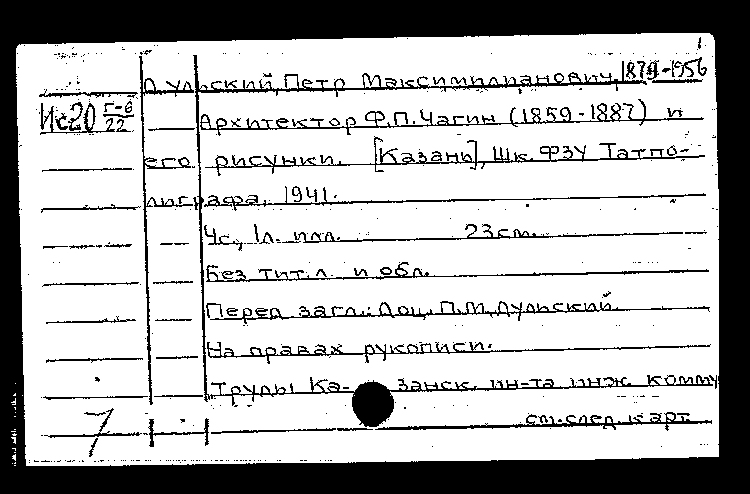 Дульский, Петр Максимилианович, 1879-1956
Ис20 Г-6/22
Архитектор Ф.П.Чагин (1859-1887) и
его рисунки. [Казань], Шк. ФЗУ Татпо-
лиграфа, 1941.
4с., 1л. илл. 23см.
Без тит.л. и обл.
Перед загл.: Доц. П.М.Дульский.
На правах рукописи.
Труды Ка- занск. ин-та инж. комму
см.след.карт.
7